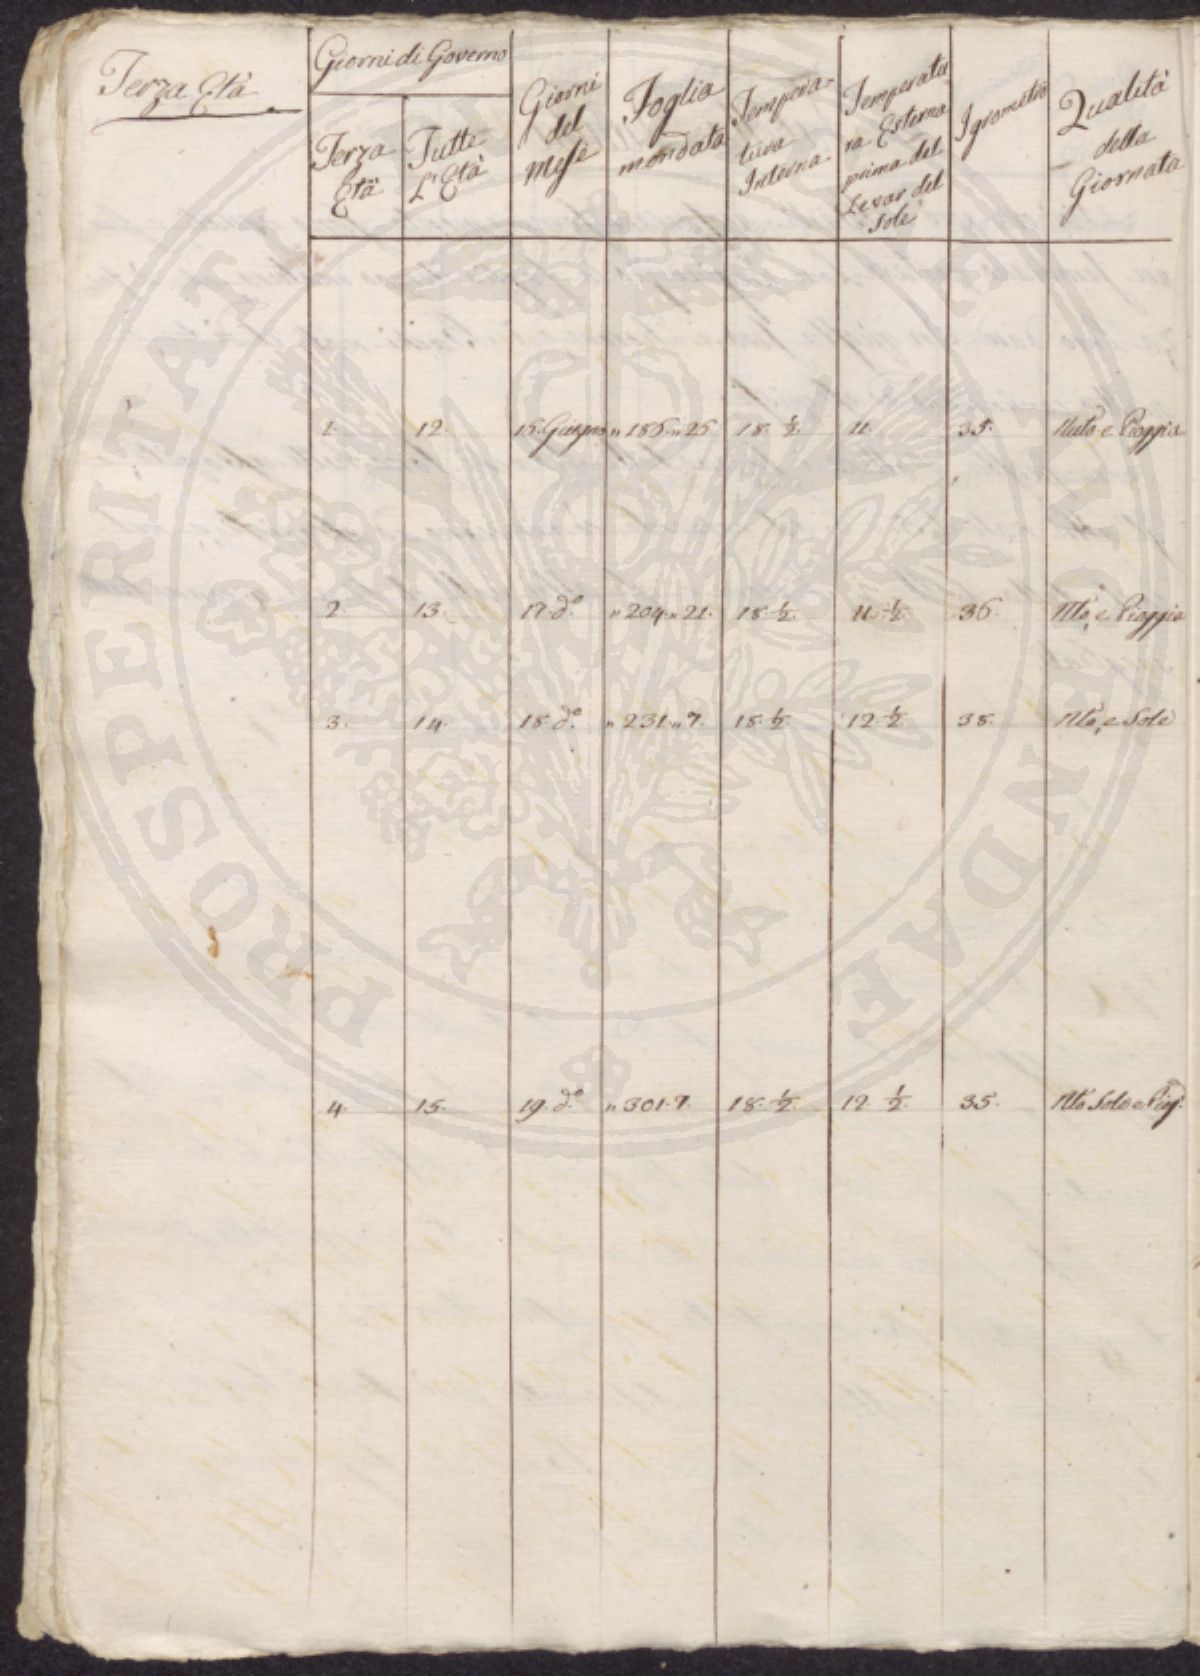 Terza Età
Giorni di Governo
Terza Età
Tutte L'Età
Giorni del Mese
Foglia mondata
Temperatura Interna
Temperatura Esterna prima del Levar del Sole
Igrometro
Qualità della Giornata
1. 12. 15. Giugno " 185 " 25 18. ½ 11. 35. Nulo e Pioggia
2 13. 17. d.o " 204 " 21. 18. ½. 11. ½ 36. Nlo, e Pioggia
3. 14. 18. d.o " 231 " 7. 18. ½ 12. ½ 38. Nlo, e Sole
4 15. 19. d.o " 301. 7. 18. ½. 12 ½. 35. Nlo Sole e Piog.
PROSPERITATI AUGENDAE